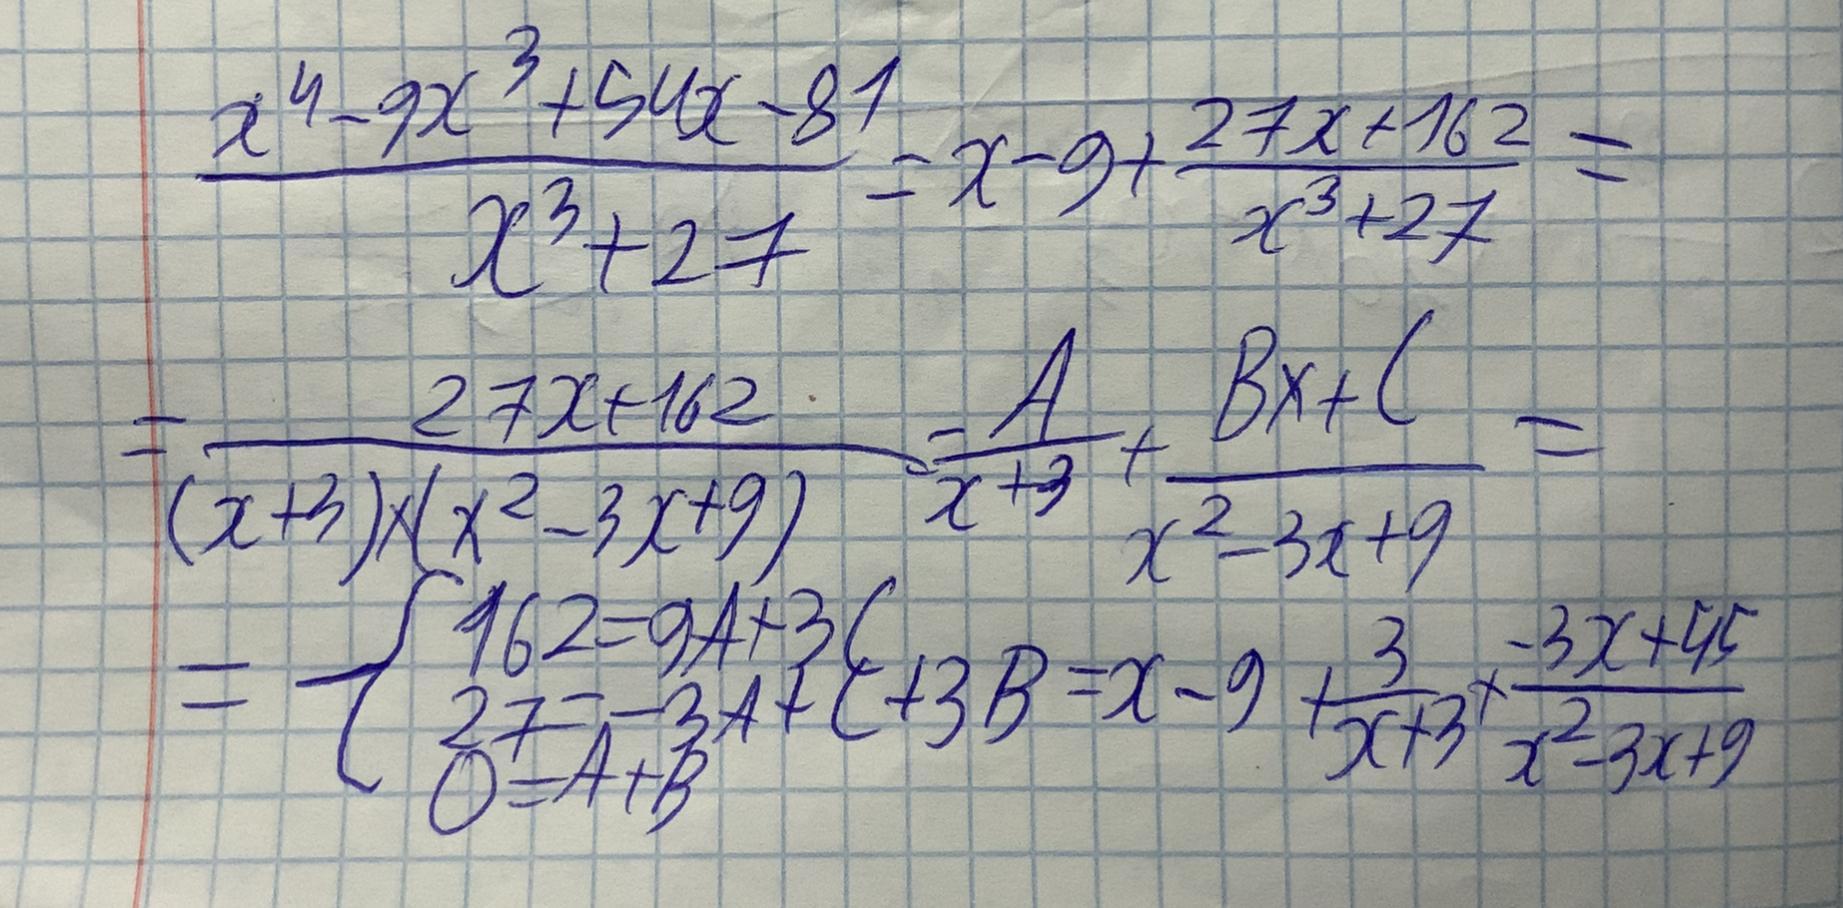 x⁴-9x³+54x-81/x³+27 = x-9+27x+162/x³+27 =
= 27x+162/(x+3)×(x²-3x+9) = A/x+3 + Bx+C/x²-3x+9 =
= { 162=9A+3C
27=-3A+C+3B = x-9+3/x+3+-3x+45/x²-3x+9
0=A+B